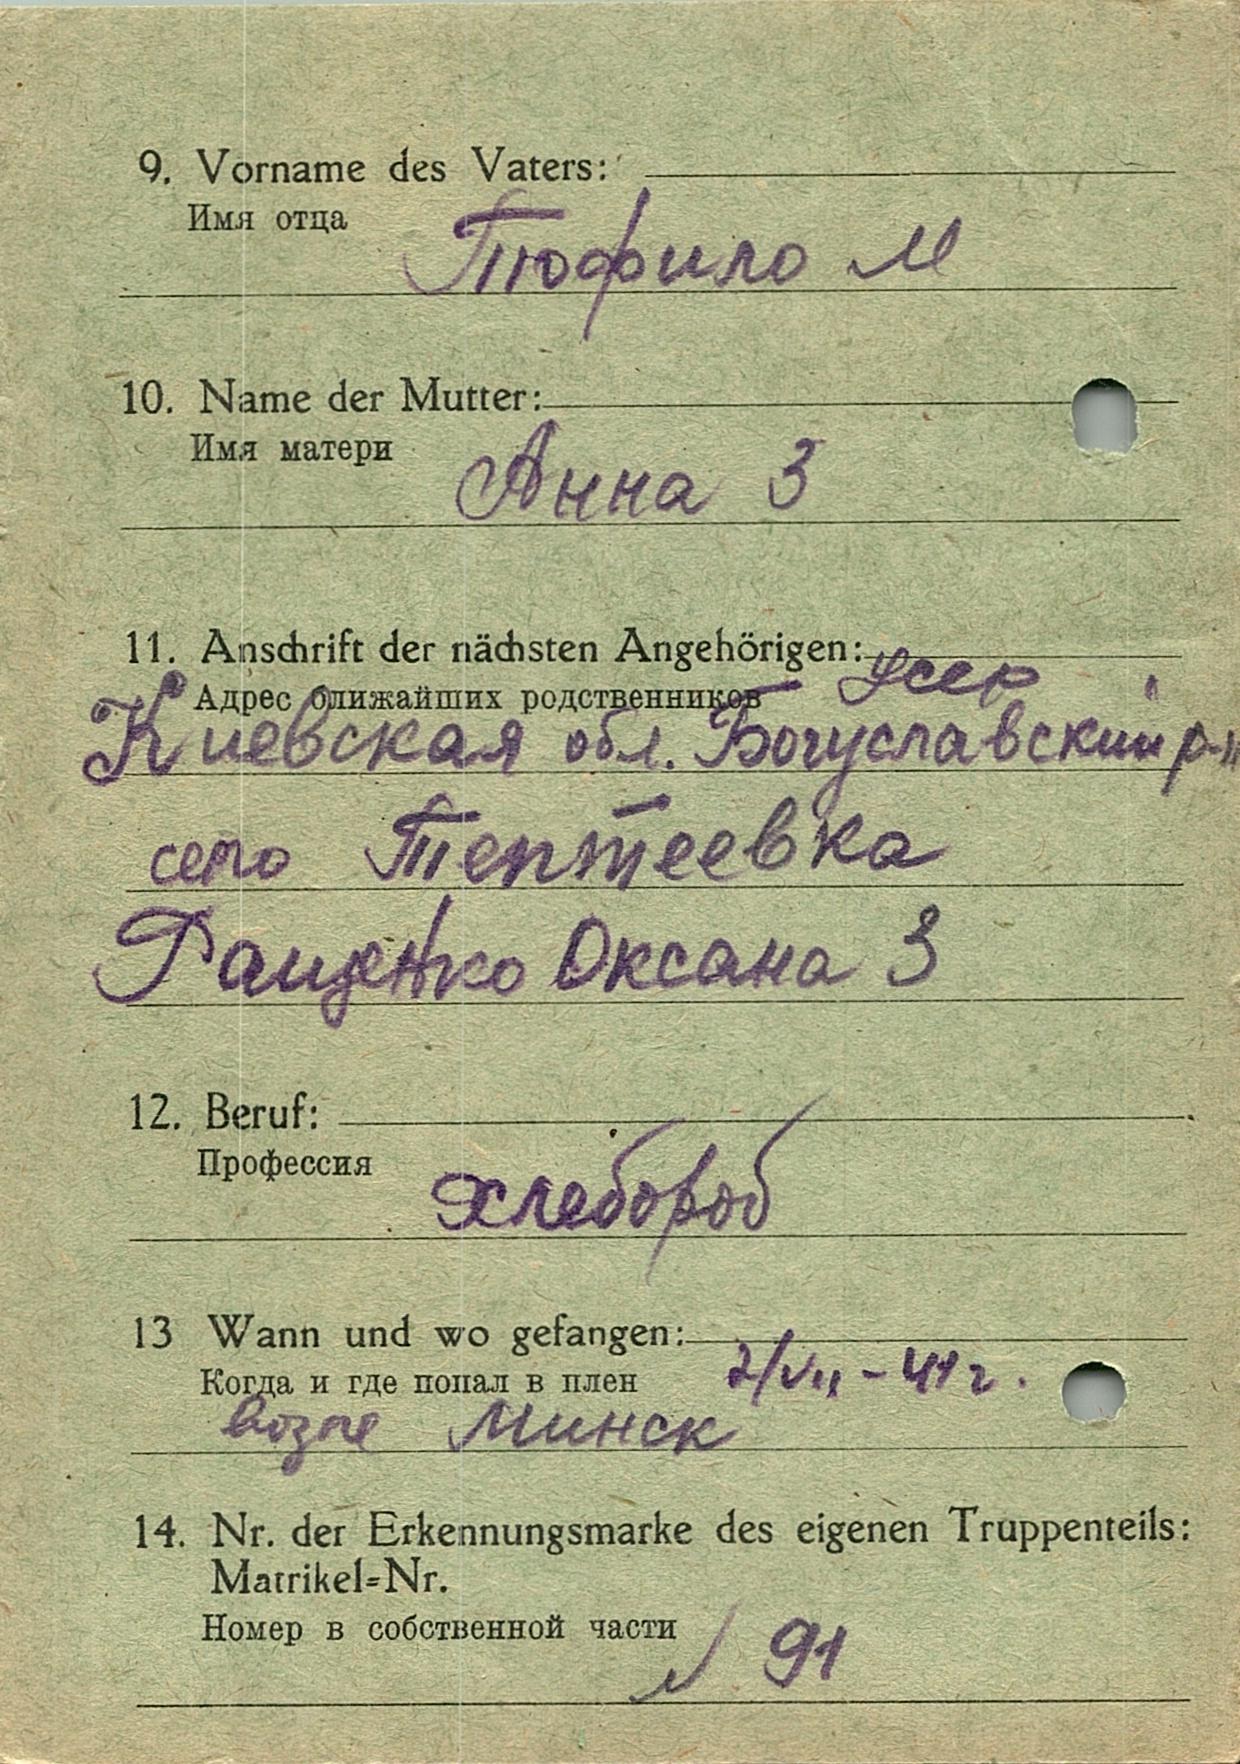 9. Vorname des Vaters:
Имя отца
Тюфило М
10. Name der Mutter:
Имя матери
Анна З
11. Anschrift der nächsten Angehörigen: усер
Адрес ближайших родственников
Киевская обл. Богуславский р-н
село Тептеевка
Ращенко Оксана З
12. Beruf:
Профессия
хлебороб
13 Wann und wo gefangen:
Когда и где попал в плен 2/VII-41 г.
возле Минск
14. Nr. der Erkennungsmarke des eigenen Truppenteils:
Matrikel=Nr.
Номер в собственной части
91